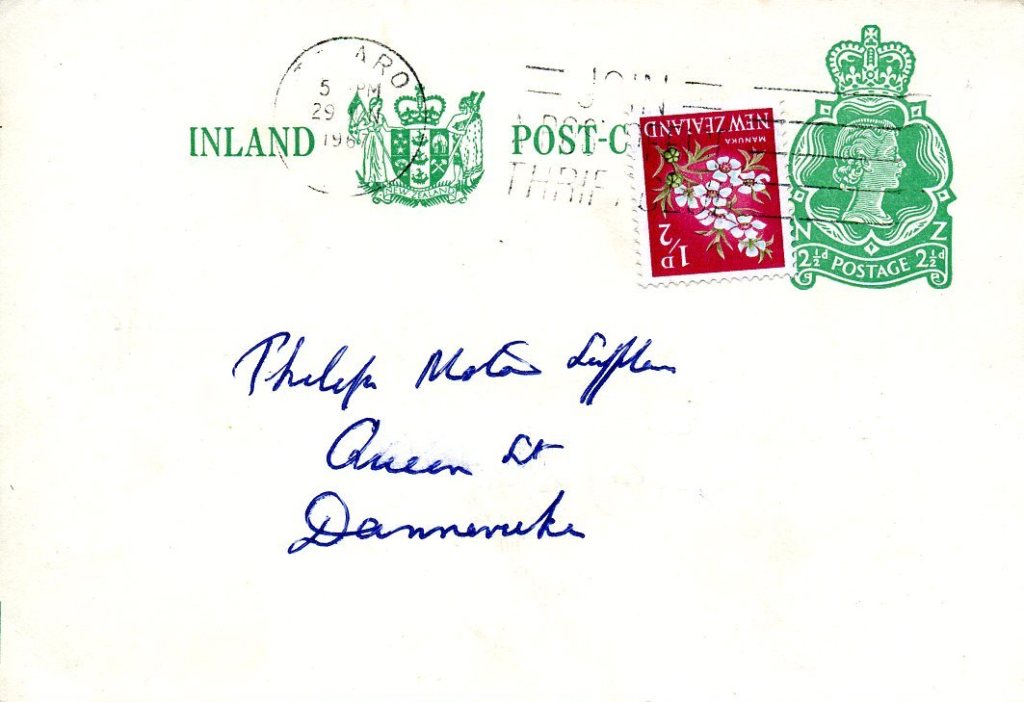 ARO
5 PM
29 JAN
1967
INLAND
POST-C
NEW ZEALAND
JOIN
THRIF
NEW ZEALAND
MANUKA
1/2 D
N Z
2½d POSTAGE 2½d
Philips Motor Supplies
Queen St
Dannevirke